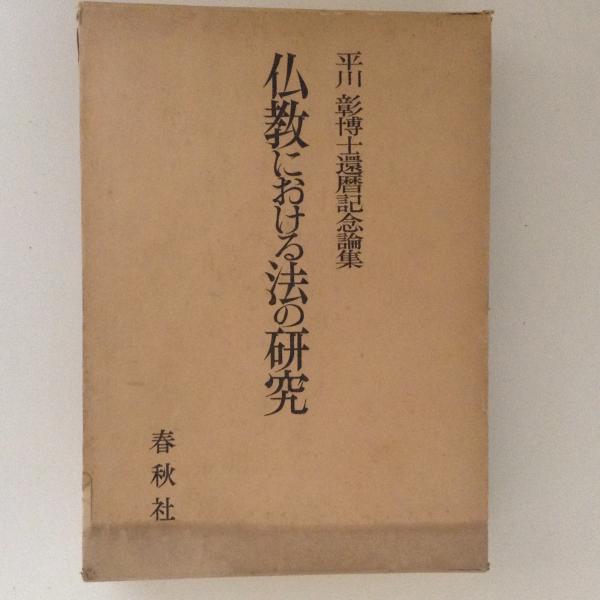 平川 彰博士還暦記念論集
仏教における法の研究
春秋社